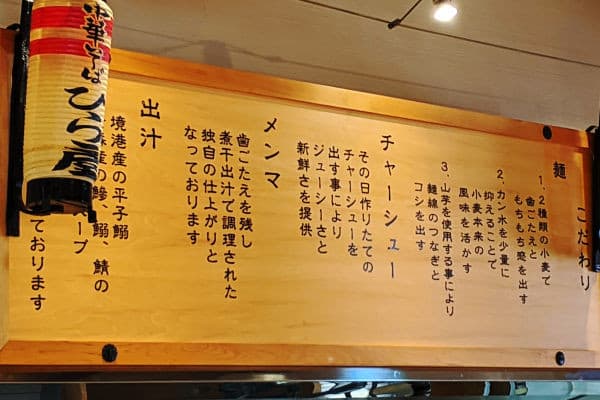 こだわり
麺
1、2種類の小麦で
歯ごたえと
もちもち感を出す
2、カン水を少量に
抑えることで
小麦本来の
風味を活かす
3、山芋を使用する事により
麺線のつなぎと
コシを出す
チャーシュー
その日作りたての
チャーシューを
出す事により
ジューシーさと
新鮮さを提供
メンマ
歯ごたえを残し
煮干出汁で調理された
独自の仕上がりと
なっております
出汁
境港産の平子鰯
産の鯵、鰯、鯖の
ープ
ております
中華そば
ひら屋